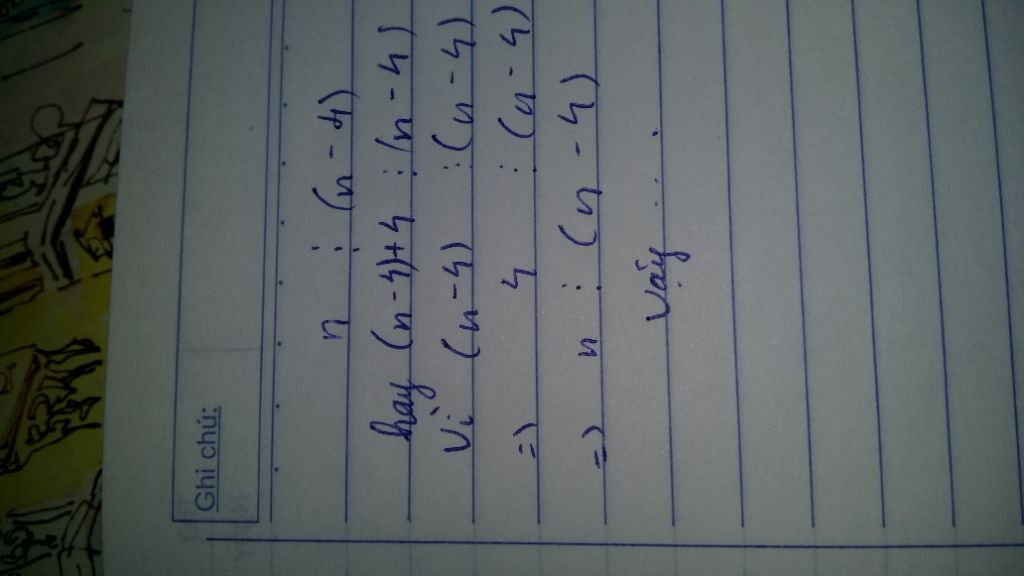 Ghi chú:
n ⋮ (n - 4)
hay (n - 4) + 4 ⋮ (n - 4)
Vì (n - 4) ⋮ (n - 4)
=> 4 ⋮ (n - 4)
=> n ⋮ (n - 4)
Vậy ....